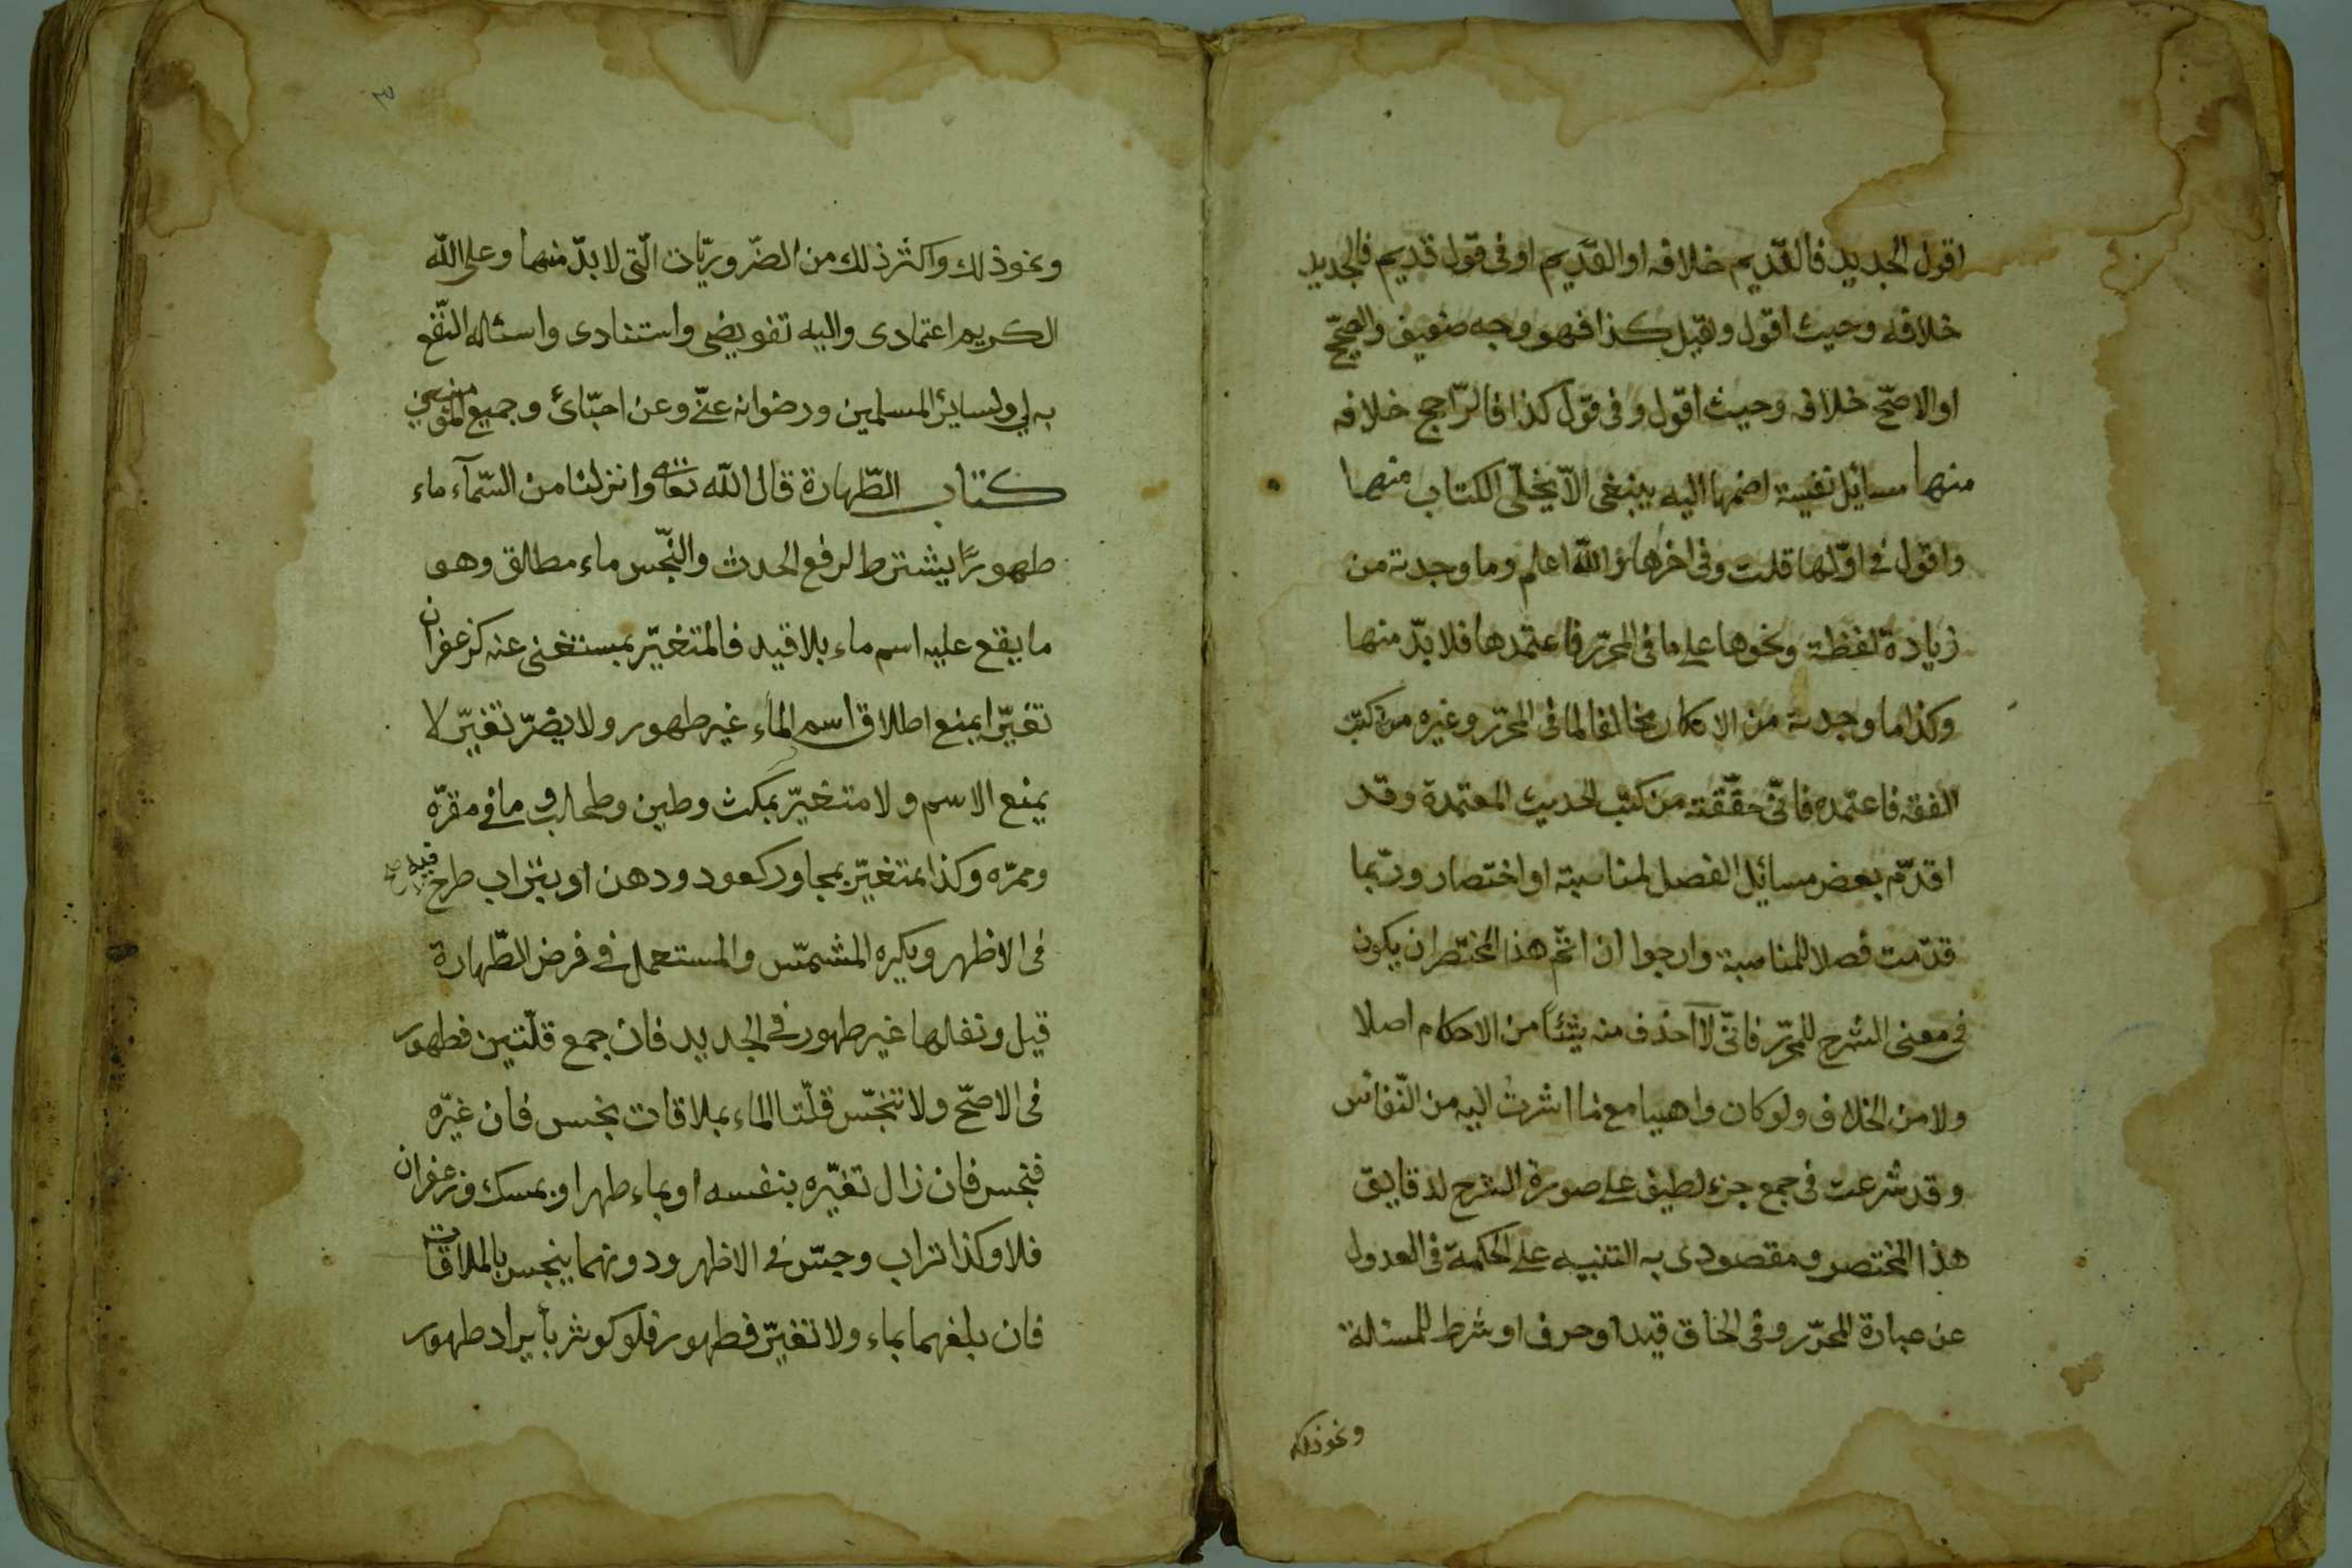 اقول الجديد فالقديم خلافه او القديم او فى قول قديم فالجديد
خلافه وحيث اقول وقيل كذا فهو وجه ضعيف والصحيح
او الاصحّ خلافه وحيث اقول و فى قول كذا فالرّاجح خلافه
منها مسائل نفيسة اضمها اليه ينبغى الاّ يخلّى الكتاب منها
واقول فى اوّلها قلت وفى اخرها والله اعلم وما وجدته من
زيادة لفظة ونحوها على ما فى المحرّر فاعتمدها فلا بدّ منها
وكذا ما وجدته من الاذكار مخالفا لما فى المحرّر وغيره من كتب
الفقه فاعتمده فانّى حقّقته من كتب الحديث المعتمدة وقد
اقدّم بعض مسائل الفصل لمناسبة او اختصار وربّما
قدّمت فصلا للمناسبة وارجوا ان اتمّ هذا المختصر ان يكون
فى معنى الشرح للمحرّر فانّى لا احذف منه شيئاً من الاحكام اصلا
ولا من الخلاف ولو كان واهيا مع ما اشرت اليه من النّفائس
وقد شرعت فى جمع جزء لطيف على صورة الشرح لدقايق
هذا المختصر ومقصودى به التنبيه على الحكمة فى العدول
عن عبارة المحرّر وفى الحاق قيد او حرف او شرط للمسئلة
ونحو ذلك
٣
ونحو ذلك واكثر ذلك من الضّروريّات الّتى لا بدّ منها وعلى اللّه
الكريم اعتمادى واليه تفويضى واستنادى واسئاله النّفع
به لى ولساير المسلمين ورضوانه عنّى وعن احبّائ وجميع المؤمنين
كتاب الطّهارة قال اللّه تعالى وانزلنا من السّمآء ماء
طهورًا يشترط لرفع الحدث والنّجس ماء مطالق وهو
ما يقع عليه اسم ماء بلا قيد فالمتغيّر بمستغنى عنه كزعفران
تغيّرا يمنع اطلاق اسم الماء غير طهور ولا يضرّ تغيّر لا
يمنع الاسم ولا متغيّر بمكث وطين وطحلب وما فى مقرّه
وممرّه وكذا متغيّر بمجاور كعود ودهن او بتراب طرح فيه
فى الاظهر ويكره المشمّس والمستعمل فى فرض الطّهارة
قيل ونفلها غير طهور فى الجديد فان جمع قلّتين فطهور
فى الاصحّ ولا تنجّس قلّتا الماء بملاقات نجس فان غيّره
فنجس فان زال تغيّره بنفسه او بماء طهر او بمسك وزعفران
فلا وكذا تراب وجصّ فى الاظهر ودونهما ينجس بالملاقات
فان بلغهما بماء ولا تغيّر فطهور فلو كوثر بأيراد طهور